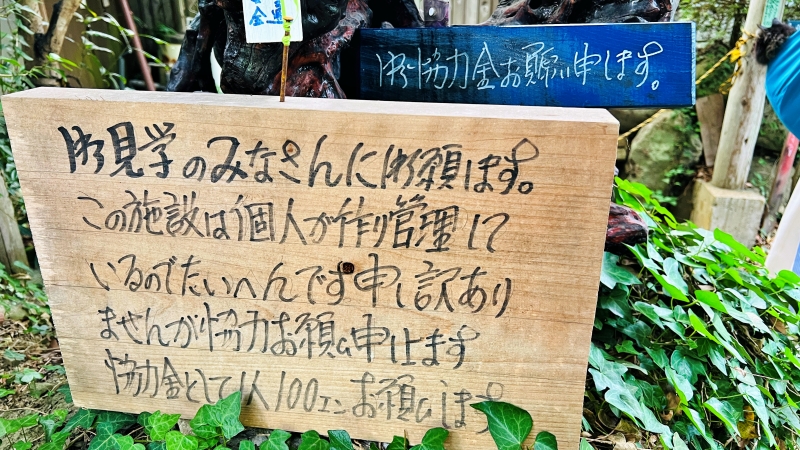 金
御協力金お願い申します。
御見学のみなさんに御願います。
この施設は個人が作り管理して
いるのでたいへんです申し訳あり
ませんが協力お願い申上ます
協力金として1人100エンお願いします